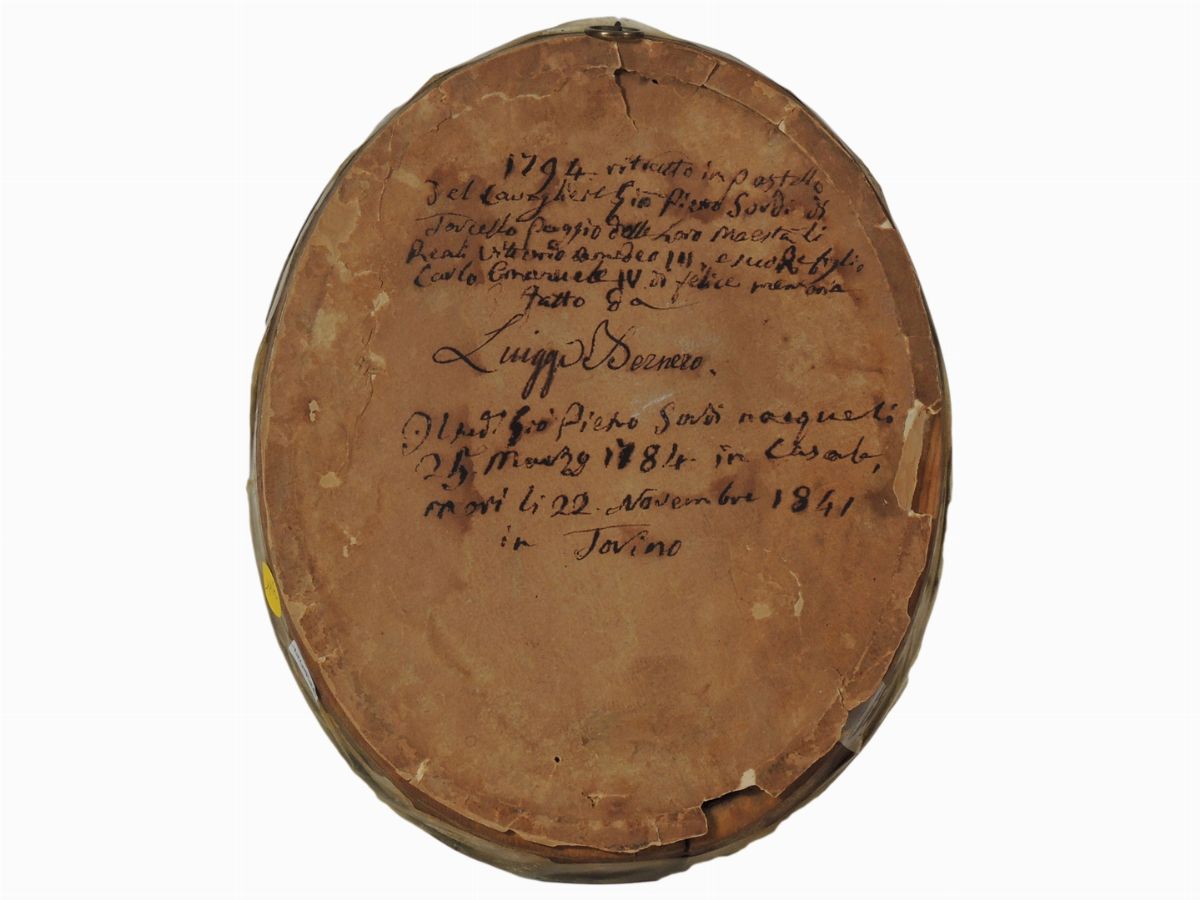 1794 ritratto in pastello
del Cavaglier Giõ Pietro Sordi di
Torcello Paggio delle Loro Maestà li
Reali Vittorio Amedeo III, e suo Re figlio
Carlo Emanuele IV di felice memoria
fatto da
Luiggi Bernero.
Il sud.º Giõ Pietro Sordi nacque li
25 Marzo 1784 in Casale,
morì li 22. Novembre 1841
in Torino